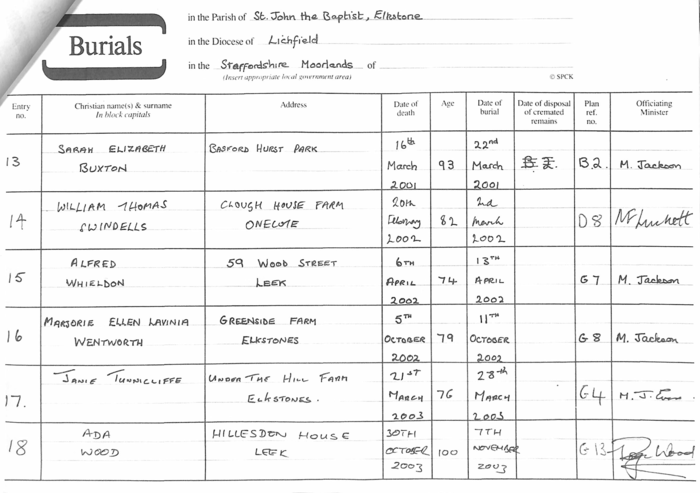 Burials
in the Parish of St. John the Baptist, Elkstone
in the Diocese of Lichfield
in the Staffordshire Moorlands of
(Insert appropriate local government area)
© SPCK
Entry no. Christian name(s) & surname In block capitals Address Date of death Age Date of burial Date of disposal of cremated remains Plan ref. no. Officiating Minister
13 SARAH ELIZABETH BUXTON BASFORD HURST PARK 16th March 2001 93 22nd March 2001 B2. M. Jackson
14 WILLIAM THOMAS SWINDELLS CLOUGH HOUSE FARM ONECOTE 20th February 2002 82 2nd March 2002 D8
15 ALFRED WHIELDON 59 WOOD STREET LEEK 6TH APRIL 2002 74 13TH APRIL 2002 G7 M. Jackson
16 MARJORIE ELLEN LAVINIA WENTWORTH GREENSIDE FARM ELKSTONES 5TH OCTOBER 2002 79 11TH OCTOBER 2002 G8 M. Jackson
17. JANIE TUNNICLIFFE UNDER THE HILL FARM ELKSTONES. 21ST MARCH 2003 76 28th MARCH 2003 G4 M. J. Evans
18 ADA WOOD HILLESDON HOUSE LEEK 30TH OCTOBER 2003 100 7TH NOVEMBER 2003 G13 Wood